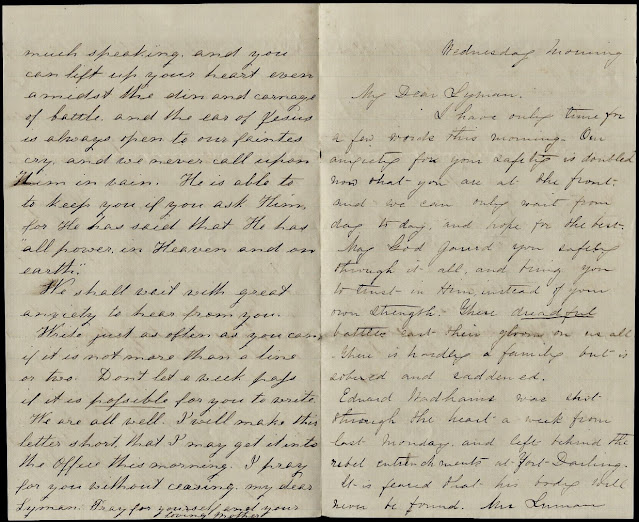 much speaking, and you
can lift up your heart even
amidst the din and carnage
of battle, and the ear of Jesus
is always open to our faintes
cry, and we never call upon
Him in vain. He is able to
to keep you if you ask Him,
for He has said that He has
"all power, in Heaven and on
earth".
We shall wait with great
anxiety to hear from you.
Write just as often as you can,
if it is not more than a line
or two. Don't let a week pass
if it is possible for you to write.
We are all well. I will make this
letter short, that I may get it into
the Office this morning. I pray
for you without ceasing, my dear
Lyman. Pray for yourself and your
loving Mother
Wednesday Morning
My Dear Lyman.
I have only time for
a few words this morning. Our
anxiety for your safety is doubled
now that you are at the front,
and we can only wait from
day to day, and hope for the best.
May God guard you safely
through it all, and bring you
to trust in Him instead of your
own strength. These dreadful
battles cast their gloom on us all
There is hardly a family but is
sobered and saddened.
Edward Wadhams was shot
through the heart a week from
last Monday, and left behind the
rebel entrenchments at Fort Darling.
It is feared that his body will
never be found. Mrs Lyman